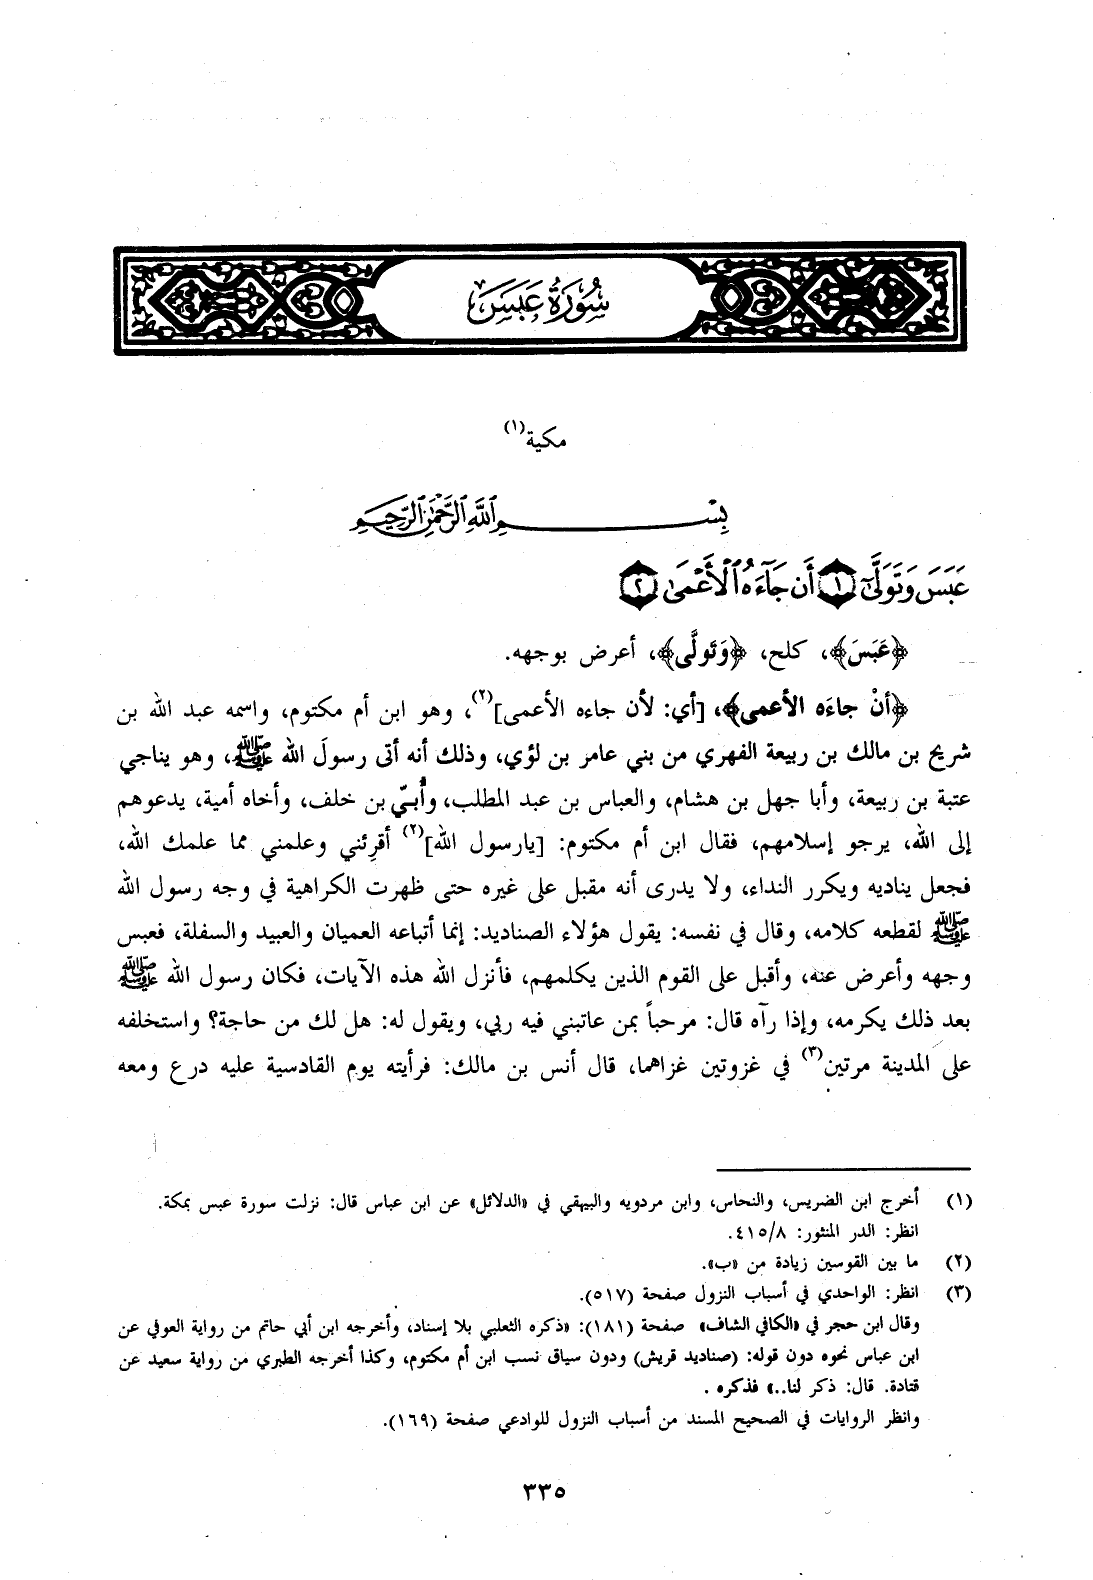 سُورَةُ عَبَسَ
مكية(١)
بِسْــــــمِ ٱللَّهِ ٱلرَّحْمَٰنِ ٱلرَّحِيمِ
عَبَسَ وَتَوَلَّىٰٓ ١ أَن جَآءَهُ ٱلْأَعْمَىٰ ٢
﴿عَبَسَ﴾، كلح، ﴿وَتَولَّى﴾، أعرض بوجهه.
﴿أنْ جاءَه الأعمى﴾، [أي: لأن جاءه الأعمى](٢)، وهو ابن أم مكتوم، واسمه عبد الله بن
شريح بن مالك بن ربيعة الفهري من بني عامر بن لؤي، وذلك أنه أتى رسولَ الله ﷺ، وهو يناجي
عتبة بن ربيعة، وأبا جهل بن هشام، والعباس بن عبد المطلب، وأُبيّ بن خلف، وأخاه أمية، يدعوهم
إلى الله، يرجو إسلامهم، فقال ابن أم مكتوم: [يارسول الله](٢) أقرِئني وعلمني مما علمك الله،
فجعل يناديه ويكرر النداء، ولا يدرى أنه مقبل على غيره حتى ظهرت الكراهية في وجه رسول الله
ﷺ لقطعه كلامه، وقال في نفسه: يقول هؤلاء الصناديد: إنما أتباعه العميان والعبيد والسفلة، فعبس
وجهه وأعرض عنه، وأقبل على القوم الذين يكلمهم، فأنزل الله هذه الآيات، فكان رسول الله ﷺ
بعد ذلك يكرمه، وإذا رآه قال: مرحباً بمن عاتبني فيه ربي، ويقول له: هل لك من حاجة؟ واستخلفه
على المدينة مرتين(٣) في غزوتين غزاهما، قال أنس بن مالك: فرأيته يوم القادسية عليه درع ومعه
(١) أخرج ابن الضريس، والنحاس، وابن مردويه والبيهقي في «الدلائل» عن ابن عباس قال: نزلت سورة عبس بمكة.
انظر: الدر المنثور: ٤١٥/٨.
(٢) ما بين القوسين زيادة من «ب».
(٣) انظر: الواحدي في أسباب النزول صفحة (٥١٧).
وقال ابن حجر في «الكافي الشاف» صفحة (١٨١): «ذكره الثعلبي بلا إسناد، وأخرجه ابن أبي حاتم من رواية العوفي عن
ابن عباس نحوه دون قوله: (صناديد قريش) ودون سياق نسب ابن أم مكتوم، وكذا أخرجه الطبري من رواية سعيد عن
قتادة. قال: ذكر لنا..» فذكره .
وانظر الروايات في الصحيح المسند من أسباب النزول للوادعي صفحة (١٦٩).
٣٣٥